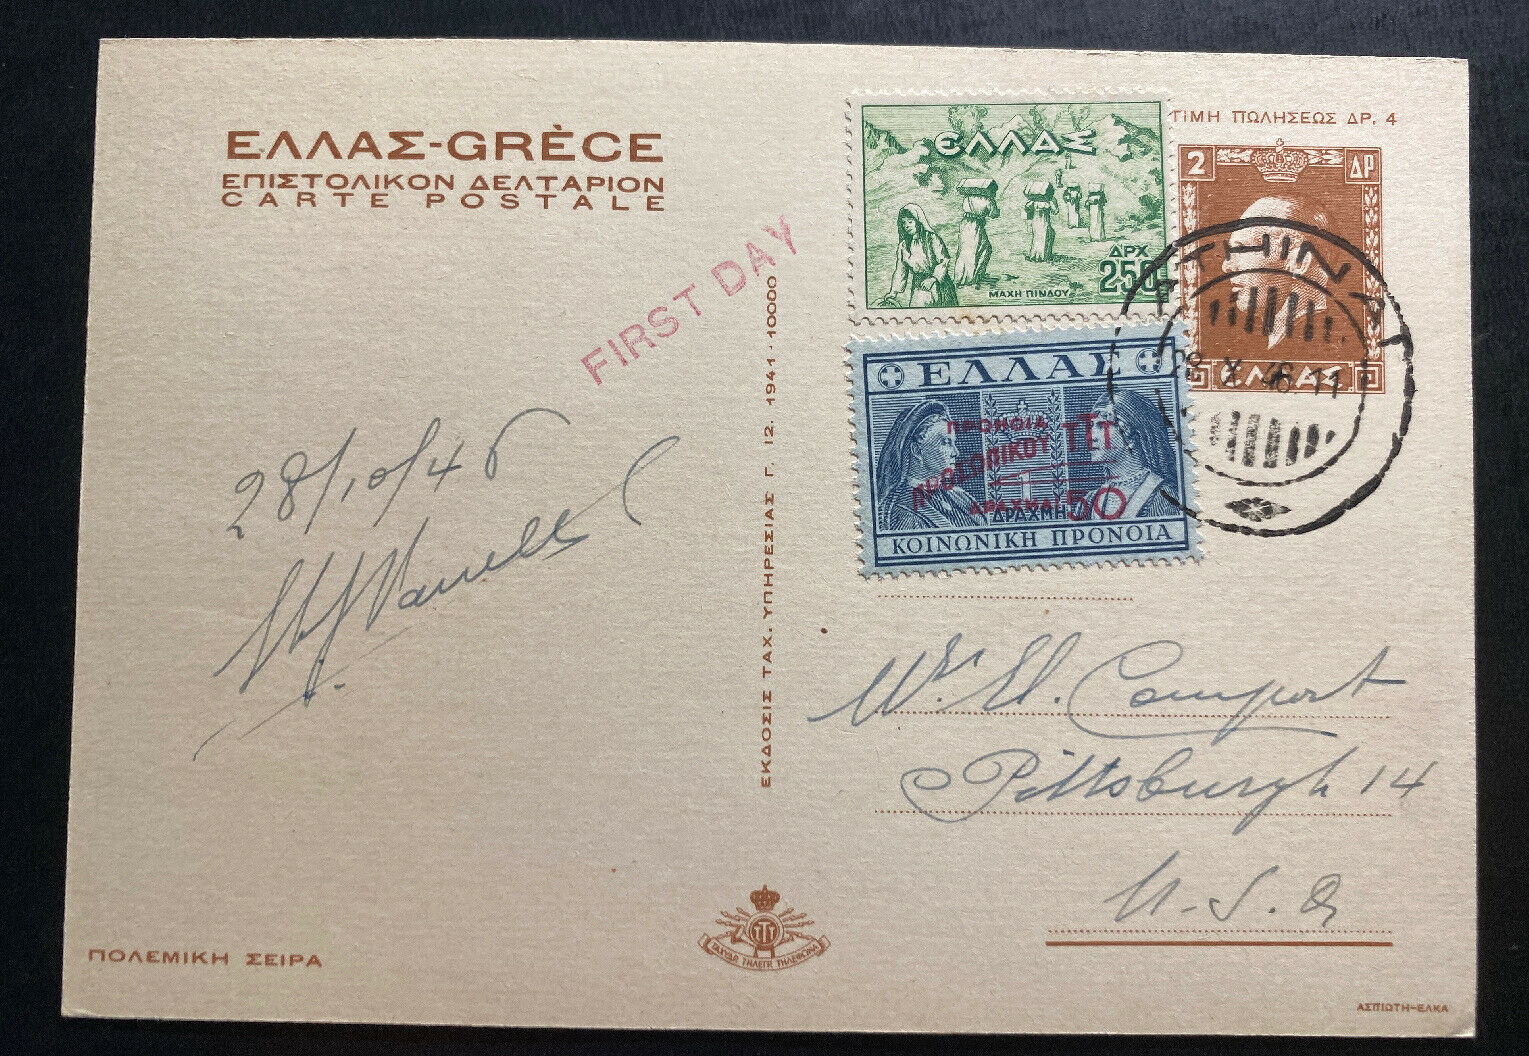 ΕΛΛΑΣ-GRÈCE
ΕΠΙΣΤΟΛΙΚΟΝ ΔΕΛΤΑΡΙΟΝ
CARTE POSTALE
FIRST DAY
28/10/46
ΠΟΛΕΜΙΚΗ ΣΕΙΡΑ
ΕΚΔΟΣΙΣ ΤΑΧ. ΥΠΗΡΕΣΙΑΣ Γ. 12. 1941 · 10000
ΤΤΤ
ΤΗΛΕΓΡ ΤΗΛΕΦΩΝΑ
ΕΛΛΑΣ
ΔΡΧ.
250
ΜΑΧΗ ΠΙΝΔΟΥ
ΤΙΜΗ ΠΩΛΗΣΕΩΣ ΔΡ. 4
2 ΔΡ
ΕΛΛΑΣ
ΑΘΗΝΑΙ
28 X 46.11
ΕΛΛΑΣ
ΠΡΟΝΟΙΑ
ΠΡΟΣΩΠΙΚΟΥ ΤΤΤ
ΔΡΑΧΜΑΙ 50
ΔΡΑΧΜΗ
ΚΟΙΝΩΝΙΚΗ ΠΡΟΝΟΙΑ
Comport
Pittsburgh 14
U.S.A
ΑΣΠΙΩΤΗ-ΕΛΚΑ